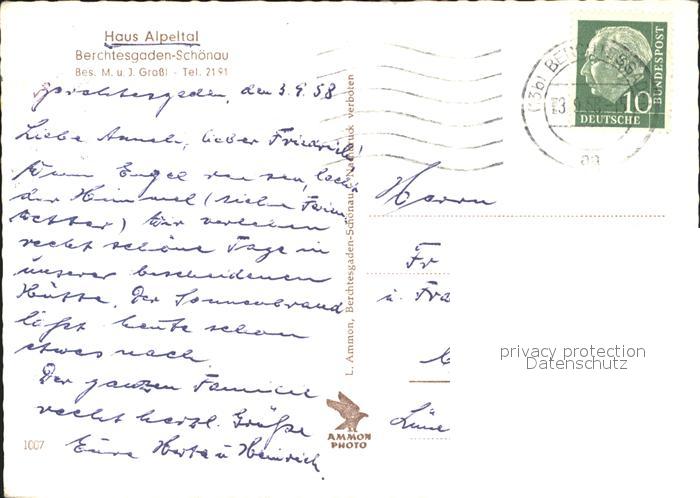 Haus Alpeltal
Berchtesgaden-Schönau
Bes. M. u. J. Graßl - Tel. 2191
Berchtesgaden, den 3.9.58
Liebe Anneli, lieber Friedrich!
Wenn Engel reisen, lacht
der Himmel (siehe Ferien
wetter) Wir verleben
recht schöne Tage in
unserer bescheidenen
Hütte. Der Sonnenbrand
läßt heute schon
etwas nach.
Der ganzen Familie
recht herzl. Grüße
Eure Herta u Heinrich
1007
L. Ammon, Berchtesgaden-Schönau, Nachdruck verboten
AMMON
PHOTO
DEUTSCHE
BUNDESPOST
10
(13b) BERCHTESGADEN
aa
Herrn
Fr
u. Fra
Lüne
privacy protection
Datenschutz